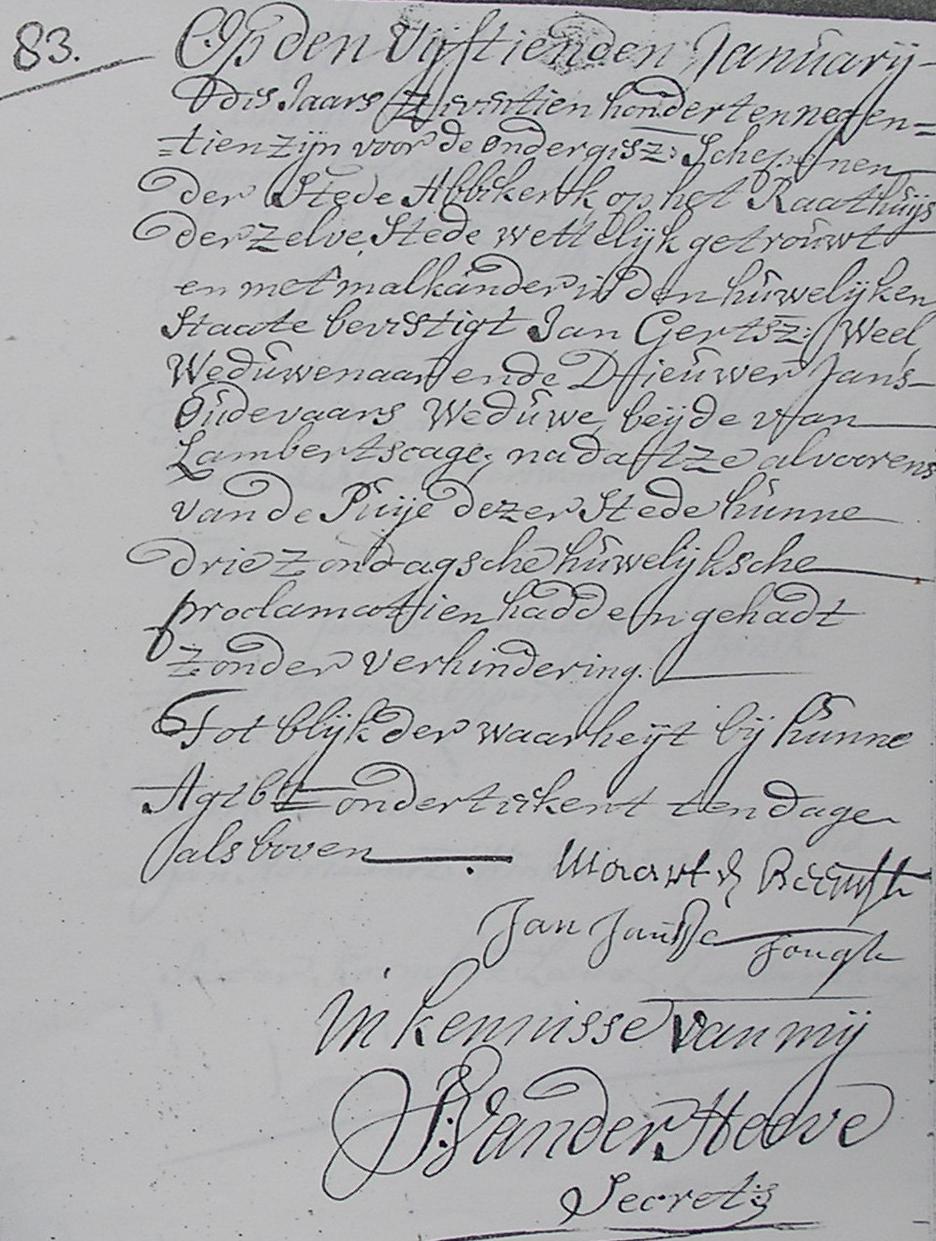 83.
Op den Vijftienden Januarij
dis Jaars Zeventien hondert en negen=
=tien zijn voor de ondergesz: Schepenen
der Stede Abbekerk op het Raathuijs
derzelve Stede wettelijk getrouwt
en met malkander in den huwelijken
Staate bevestigt Jan Gertsz: Weel
Weduwenaar ende Dieuwer Jans
Oudevaars Weduwe, beijde van
Lambertscage; nadat ze alvoorens
van de Puije dezer Stede hunne
drie Zondagsche huwelijksche
proclamatien hadden gehadt
zonder verhindering.
Tot blijk der waarheijt bij hunne
Agtb: ondertekent ten dage
als boven
Maart
Jan Jongh
In kennisse van mij
Vander Heeve
Secrets